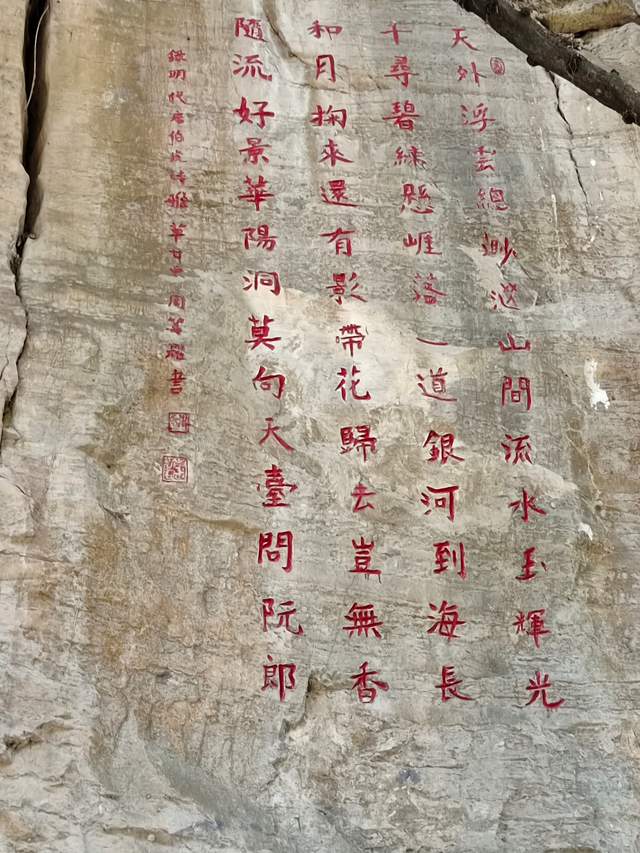 天外浮雲總渺茫山間流水玉輝光
千尋碧練懸崖落一道銀河到海長
和月掬來還有影帶花歸去豈無香
隨流好景華陽洞莫向天臺問阮郎
錄明代唐伯虎詩 周 書